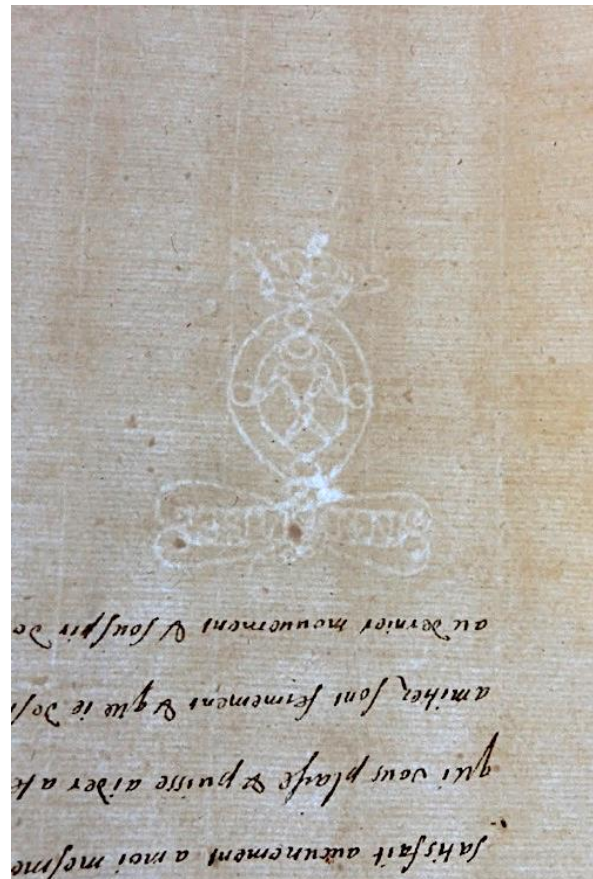 satisfait aucunement a moi mesme
qui vous plaise & puisse aider a
sont fermement & que ie
au dernier mouvement & souspir de